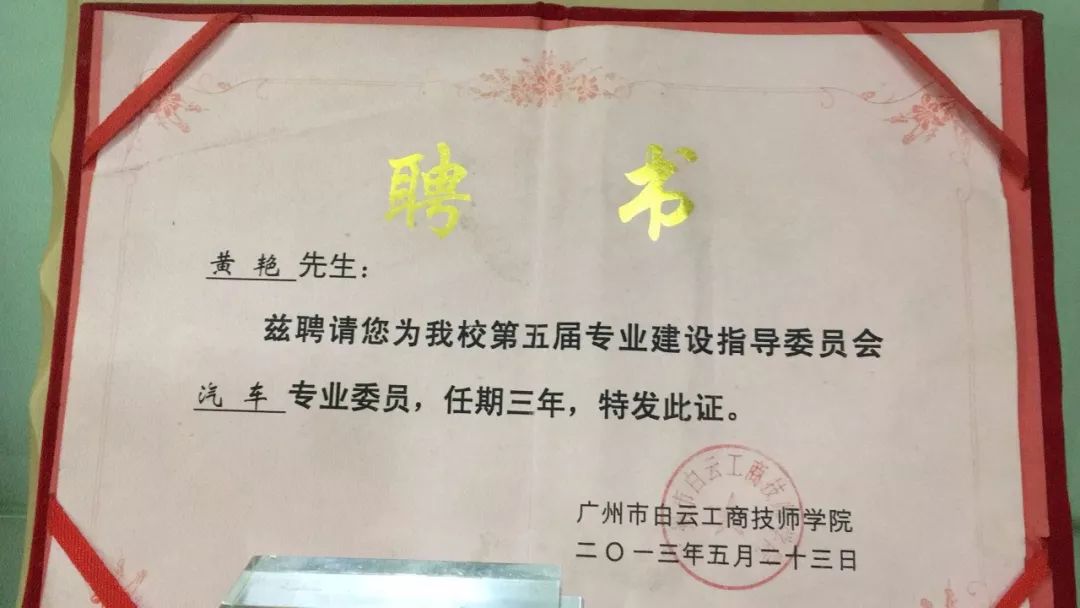 聘 书
黄 艳 先生：
兹聘请您为我校第五届专业建设指导委员会
汽 车 专业委员，任期三年，特发此证。
市白云工商技
广州市白云工商技师学院
二〇一三年五月二十三日